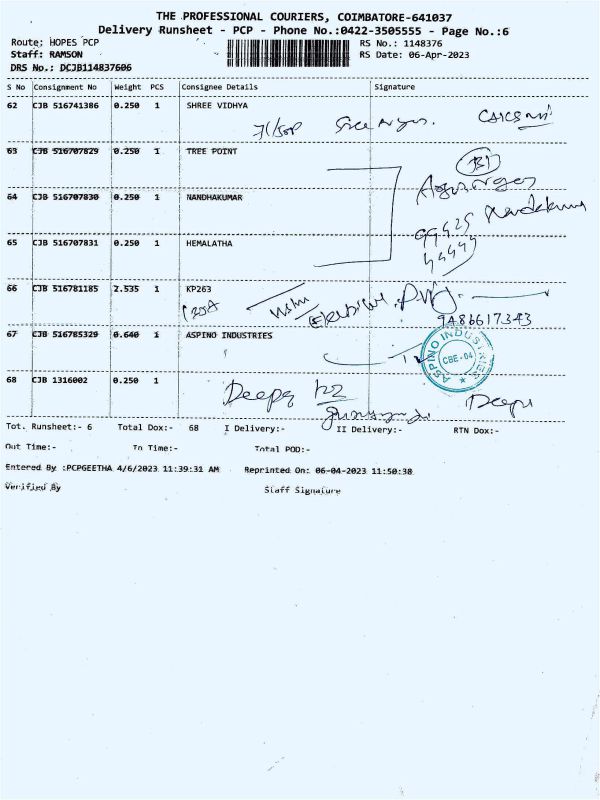 THE PROFESSIONAL COURIERS, COIMBATORE-641037
Delivery Runsheet - PCP - Phone No.:0422-3505555 - Page No.:6
Route: HOPES PCP RS No.: 1148376
Staff: RAMSON RS Date: 06-Apr-2023
DRS No.: DCJB114837606
S No Consignment No Weight PCS Consignee Details Signature
62 CJB 516741386 0.250 1 SHREE VIDHYA
63 CJB 516707829 0.250 1 TREE POINT
64 CJB 516707830 0.250 1 NANDHAKUMAR
65 CJB 516707831 0.250 1 HEMALATHA
66 CJB 516781185 2.535 1 KP263
9486617343
67 CJB 516785329 0.640 1 ASPINO INDUSTRIES
ASPINO INDUSTRIES
CBE-04
68 CJB 1316002 0.250 1
Deepa
Tot. Runsheet:- 6 Total Dox:- 68 I Delivery:- II Delivery:- RTN Dox:-
Out Time:- In Time:- Total POD:-
Entered By :PCPGEETHA 4/6/2023 11:39:31 AM Reprinted On: 06-04-2023 11:50:38
Verified By Staff Signature